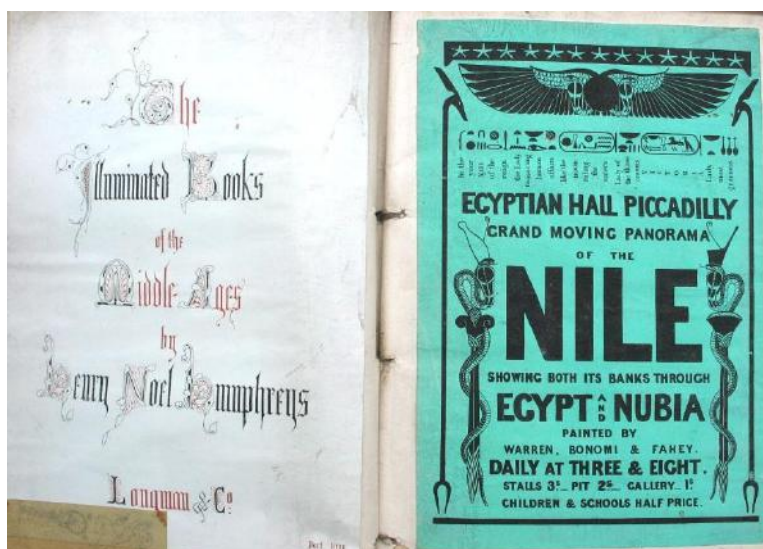 The
Illuminated Books
of the
Middle Ages
by
Henry Noel Humphreys
Longman & Co.
Part
EGYPTIAN HALL PICCADILLY
GRAND MOVING PANORAMA
OF THE
NILE
SHOWING BOTH ITS BANKS THROUGH
EGYPT AND NUBIA
PAINTED BY
WARREN, BONOMI & FAHEY.
DAILY AT THREE & EIGHT.
STALLS 3s_ PIT 2s_ GALLERY_ 1s
CHILDREN & SCHOOLS HALF PRICE.